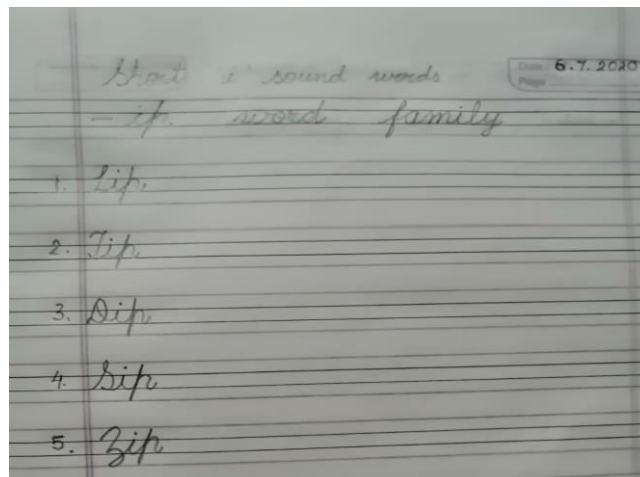 Short i' sound words
Date 6.7.2020
Page
- ip word family
1. Lip
2. Tip
3. Dip
4. Sip
5. Zip